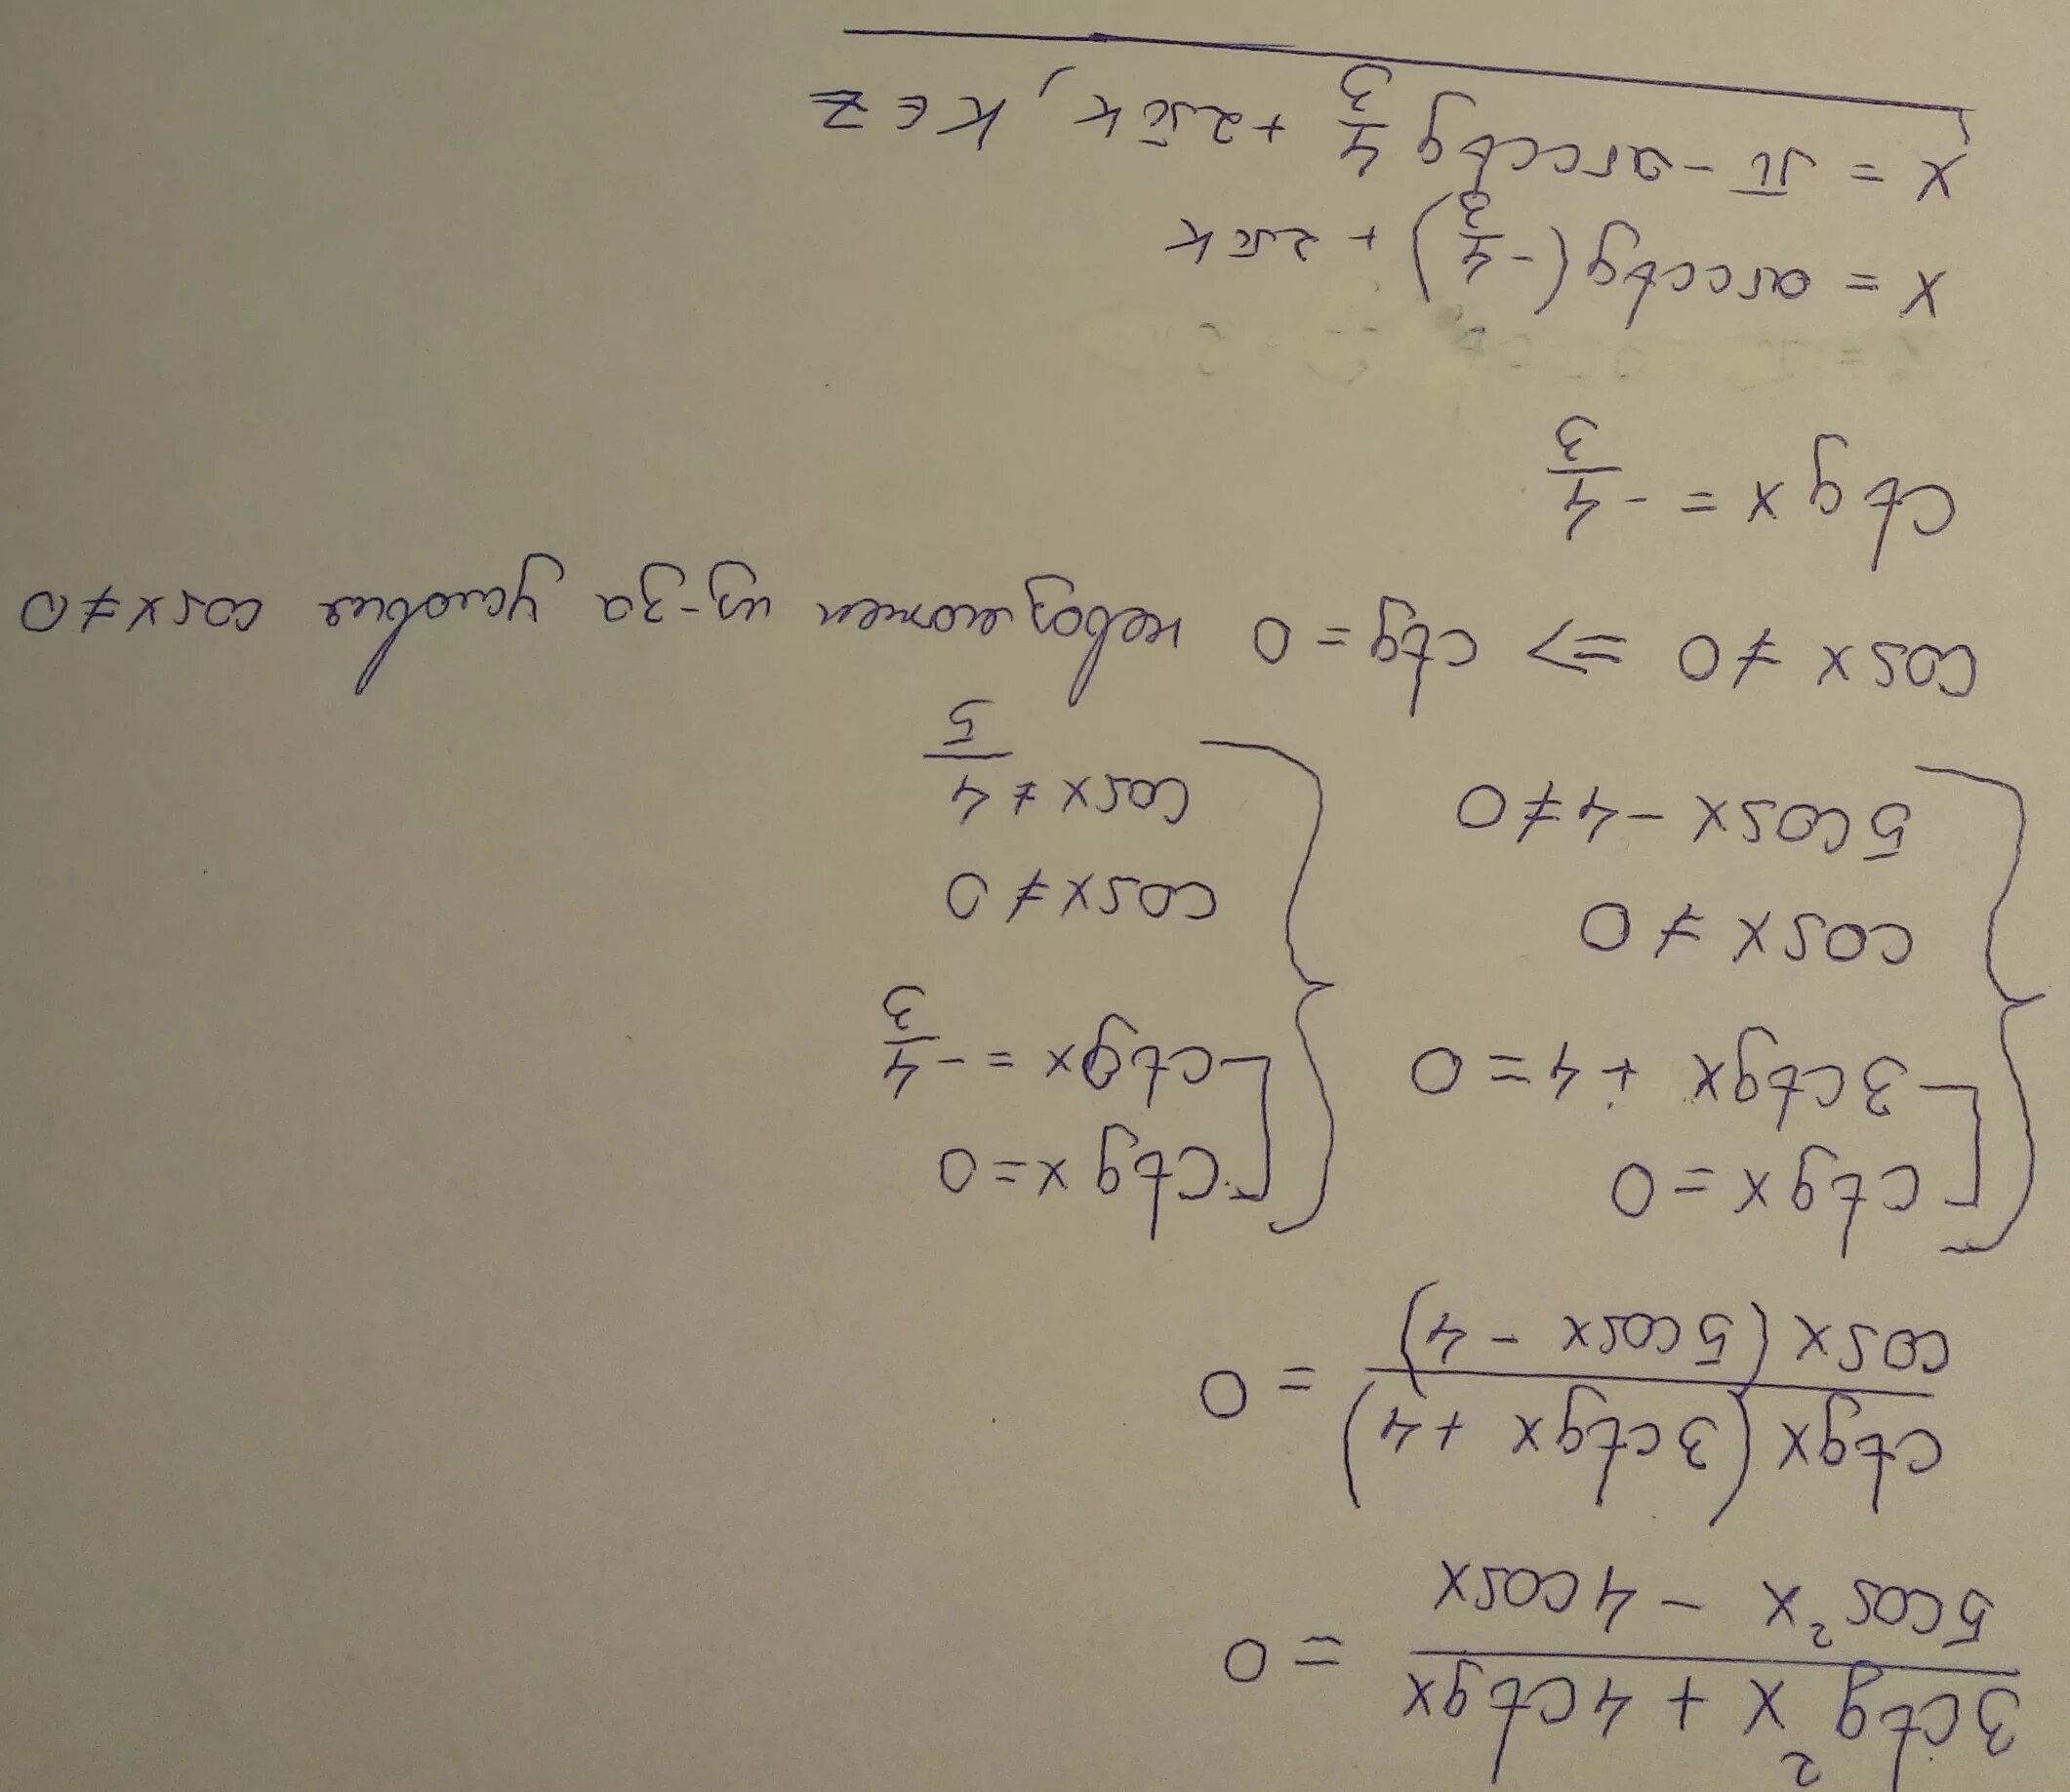 3ctg²x + 4ctgx
5cos²x - 4cosx
= 0
ctgx(3ctgx + 4)
cosx(5cosx - 4)
= 0
ctgx = 0
3ctgx + 4 = 0
cosx ≠ 0
5cosx - 4 ≠ 0
ctgx = 0
ctgx = -4/3
cosx ≠ 0
cosx ≠ 4/5
cosx ≠ 0 => ctg = 0 невозможен из-за условия cosx ≠ 0
ctgx = -4/3
x = arcctg(-4/3) + 2πk
x = π - arcctg 4/3 + 2πk, k ∈ Z